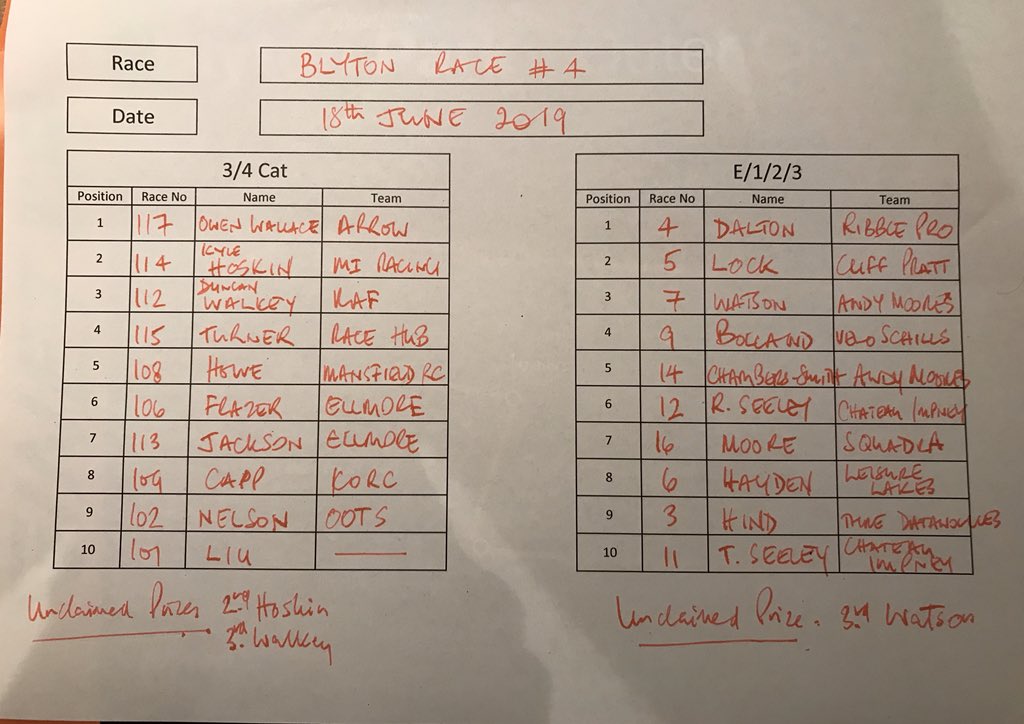 Race BLYTON RACE # 4
Date 18th JUNE 2019
3/4 Cat
Position Race No Name Team
1 117 OWEN WALLACE ARROW
2 114 KYLE HOSKIN MI RACING
3 112 DUNCAN WALKEY RAF
4 115 TURNER RACE HUB
5 108 HOWE MANSFIELD RC
6 106 FRAZER ELLMORE
7 113 JACKSON ELLMORE
8 109 CAPP KORC
9 102 NELSON OOTS
10 101 LIU
Unclaimed Prizes 2nd Hoskin
3rd Walkey
E/1/2/3
Position Race No Name Team
1 4 DALTON RIBBLE PRO
2 5 LOCK CLIFF PRATT
3 7 WATSON ANDY MOORES
4 9 BOLLAND VELO SCHILLS
5 14 CHAMBERS-SMITH ANDY MOORES
6 12 R. SEELEY CHATEAU IMPNEY
7 16 MOORE SQUADRA
8 6 HAYDEN LEISURE LAKES
9 3 HIND
10 11 T. SEELEY CHATEAU IMPNEY
Unclaimed Prize. 3rd Watson